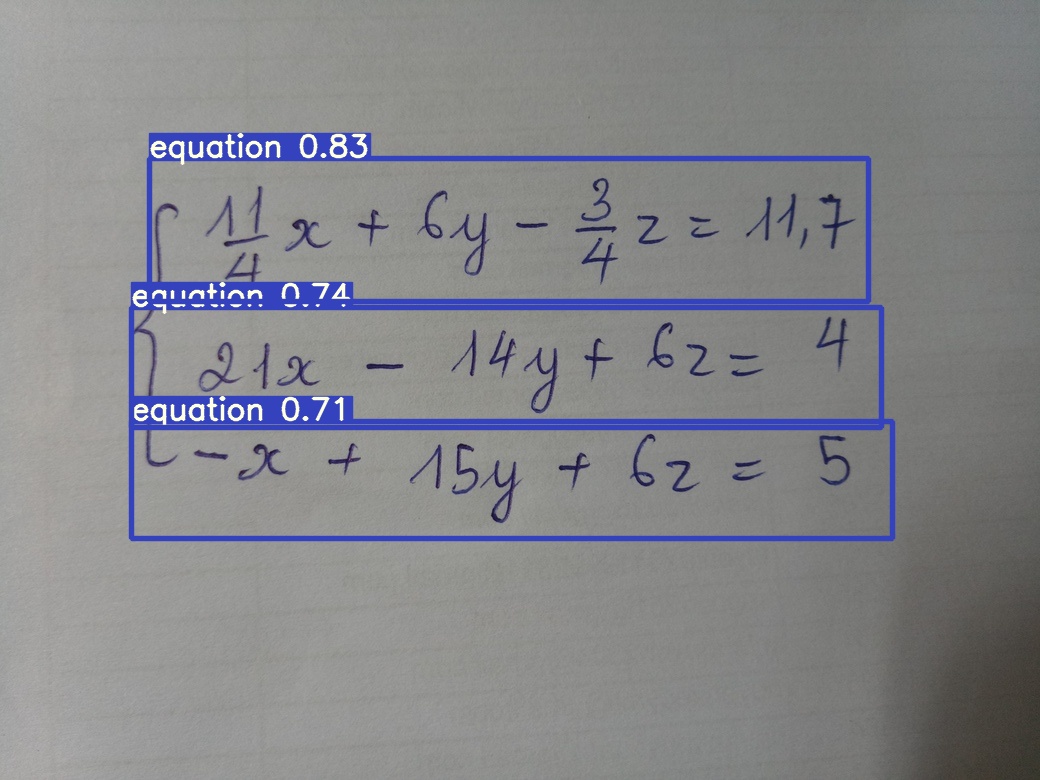 equation 0.83
11/4 x + 6y - 3/4 z = 11,7
equation 0.74
21x - 14y + 6z = 4
equation 0.71
-x + 15y + 6z = 5